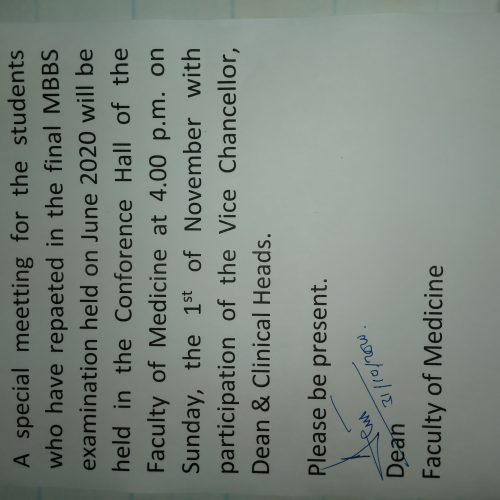 A special meetting for the students
who have repaeted in the final MBBS
examination held on June 2020 will be
held in the Conference Hall of the
Faculty of Medicine at 4.00 p.m. on
Sunday, the 1st of November with
participation of the Vice Chancellor,
Dean & Clinical Heads.
Please be present.
Dean
Faculty of Medicine